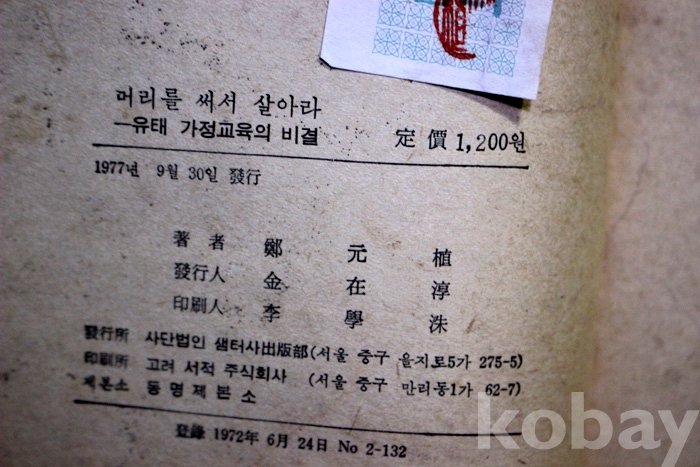 머리를 써서 살아라
—유태 가정교육의 비결
定價 1,200원
1977년 9월 30일 發行
著者 鄭元植
發行人 金在淳
印刷人 李學洙
發行所 사단법인 샘터사出版部 (서울 중구 을지로5가 275-5)
印刷所 고려 서적 주식회사 (서울 중구 만리동1가 62-7)
제본소 동명제본소
登錄 1972年 6月 24日 No 2-132
kobay